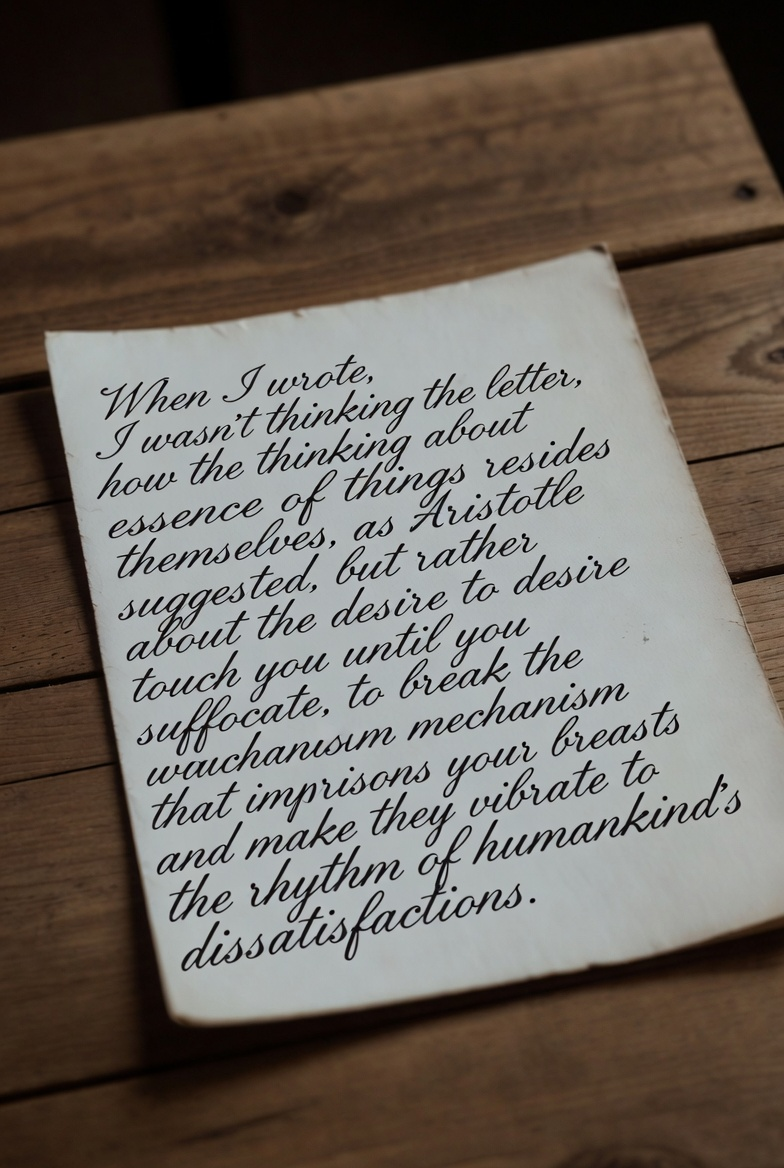 When I wrote,
I wasn't thinking the letter,
how the thinking about
essence of things resides
themselves, as Aristotle
suggested, but rather
about the desire to desire
touch you until you
suffocate, to break the
mechanism
that imprisons your breasts
and make they vibrate to
the rhythm of humankind's
dissatisfactions.